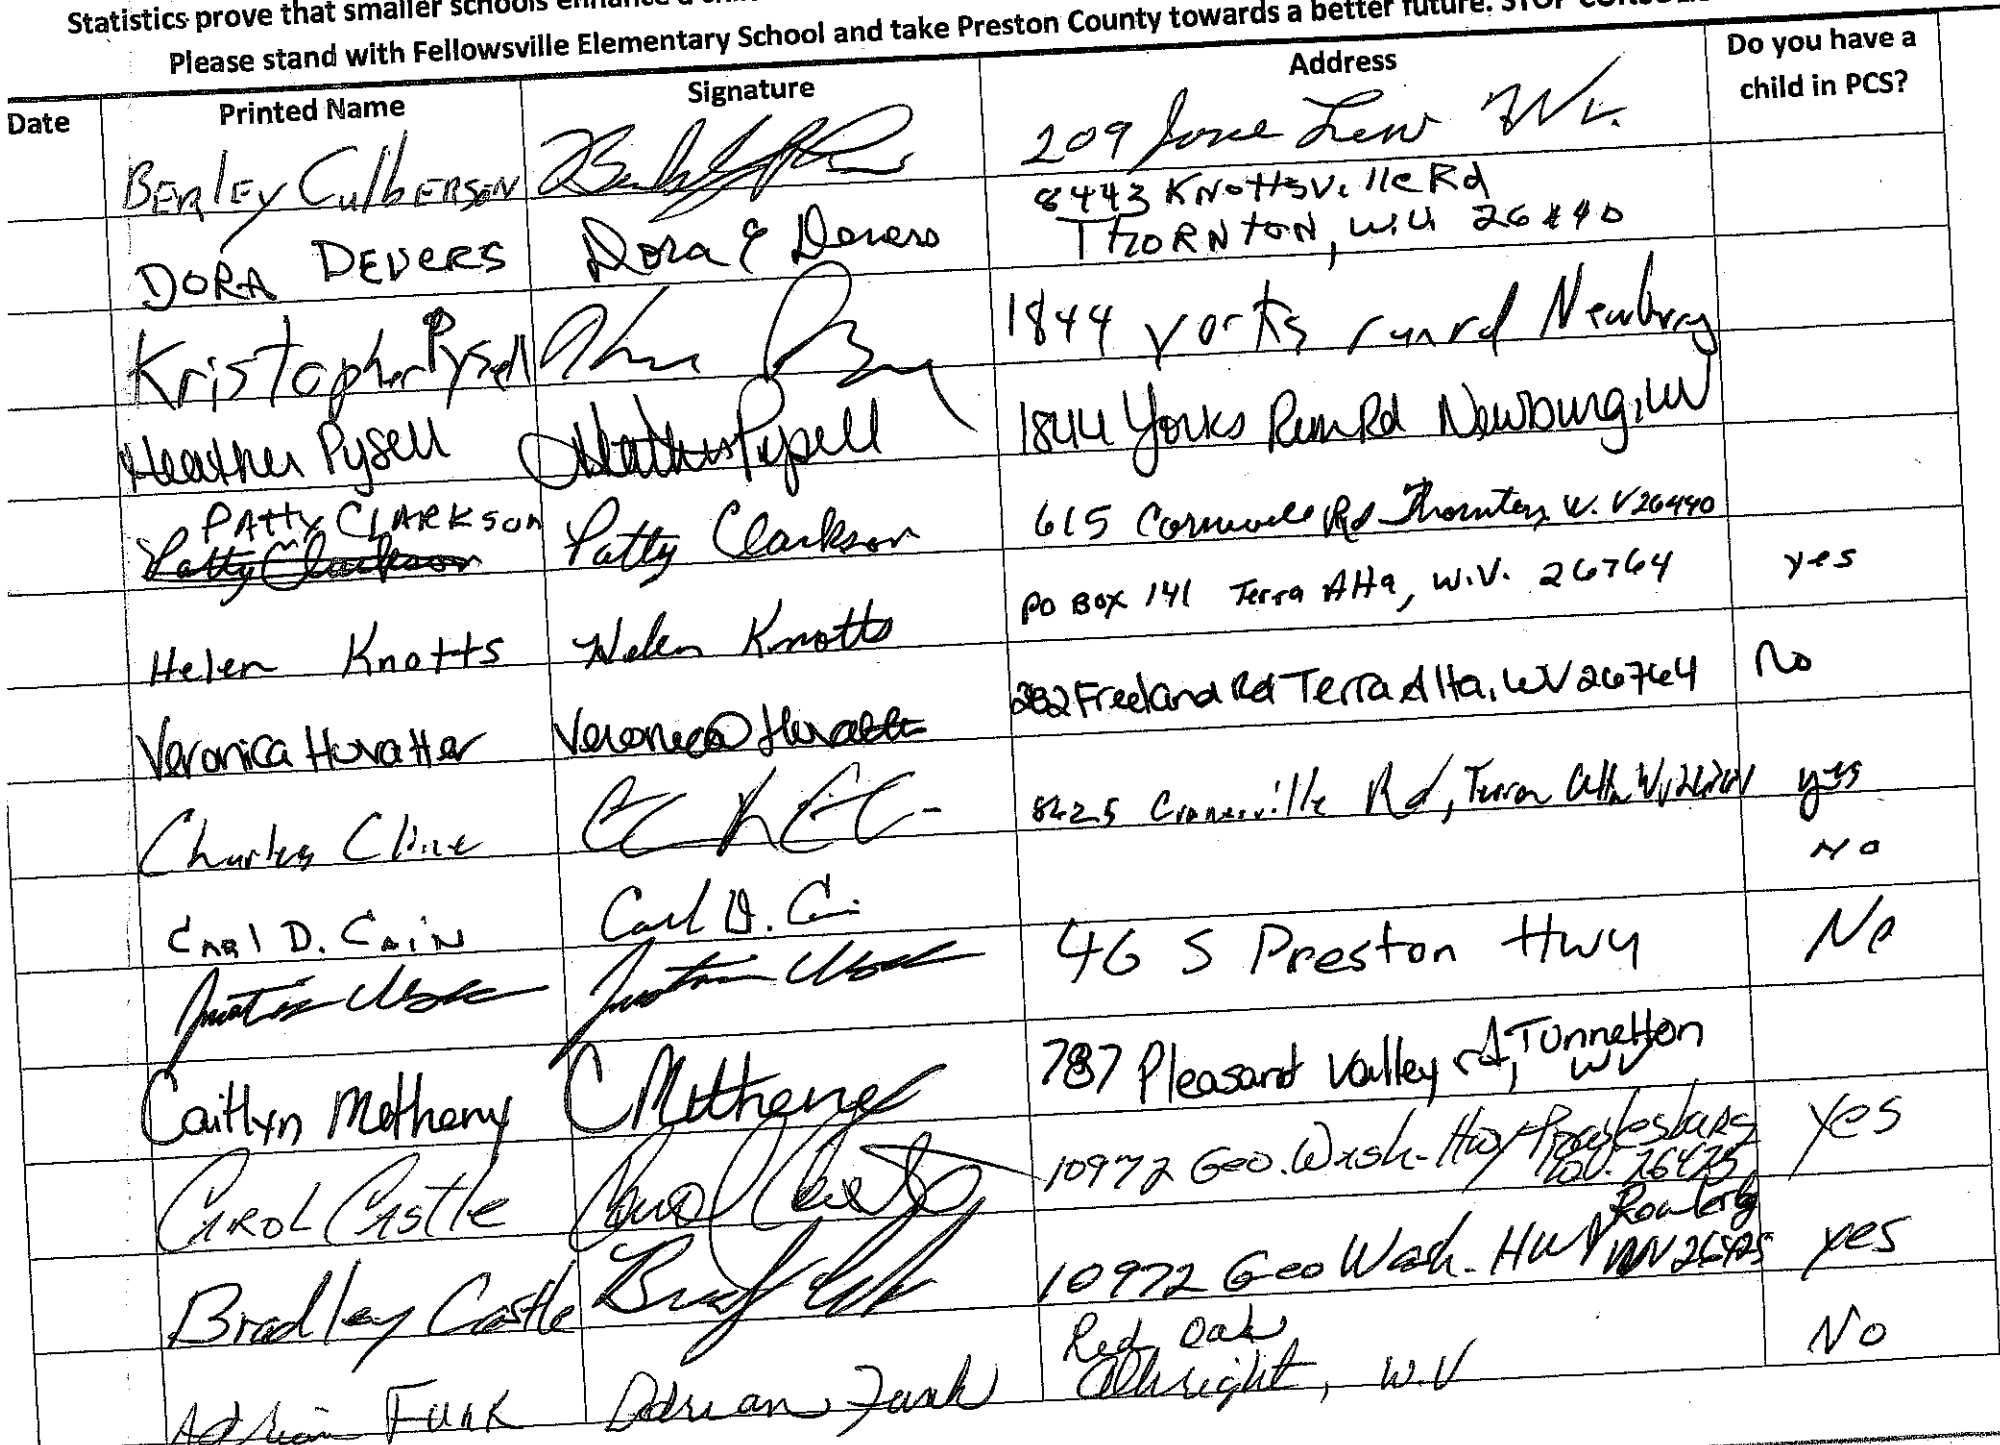 Statistics prove that smaller schools enhance a
Please stand with Fellowsville Elementary School and take Preston County towards a better future. STOP
Date Printed Name Signature Address Do you have a
child in PCS?
BERLEY CulBERSON 209 Jane Lew Wv.
DORA DEVERS Dora E Devers 8443 Knottsville Rd
THORNTON, W.V 26440
Kristopher Pysell 1844 yorks run rd Newburg
Heather Pysell Heather Pysell 1844 Yorks Run Rd Newburg, WV
PATTY CLARKSON
Patty Clarkson Patty Clarkson 615 Rd Thornton, W.V 26440
Helen Knotts Helen Knotts PO BOX 141 Terra Alta, W.V. 26764 yes
Veronica Huvatter Veronica Huvatter 282 Freeland Rd Terra Alta, WV 26764 No
Charles Cline Cranesville Rd, Terra Alta WV 26764 yes
CARl D. CAiN Carl D. No
Justin Justin 46 S Preston Hwy No
Caitlyn Metheny C Metheny 787 Pleasant Valley rd, Tunnelton
WV
CAROL CAstle Carol Castle 10972 Geo. Wash. Hwy Rowlesburg
WV. 26425 Yes
Bradley Castle 10972 Geo Wash. HWY Rowlesburg
WV 26425 yes
Adrian Funk Adrian Funk Red Oak
Albright, W.V No